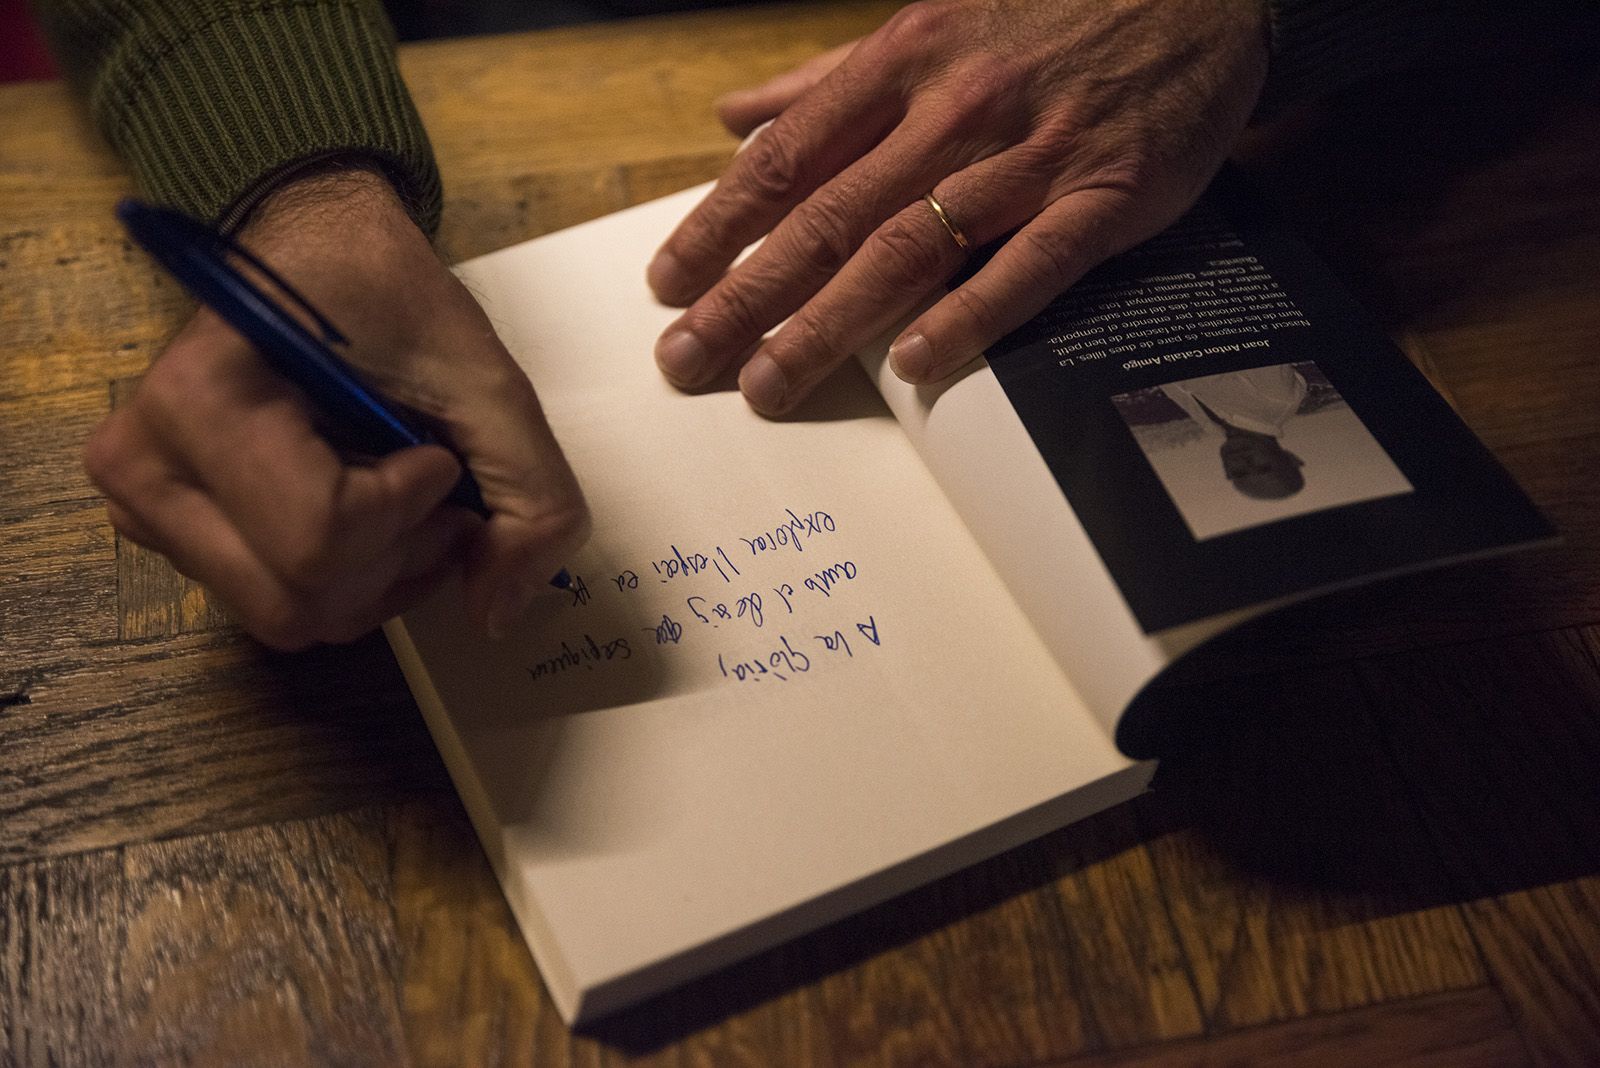 A la Glòria,
amb el desig que
explorar l'espai en
Joan Anton Català Amigó
Nascut a Tarragona, és pare de dues filles. La
llum de les estrelles el va fascinar de ben petit,
i la seva curiositat per entendre el comporta-
ment de la natura, des del món subatòmic
a l'univers, l'ha acompanyat tot
màster en Astronomia i
en Ciències Químiques
Química